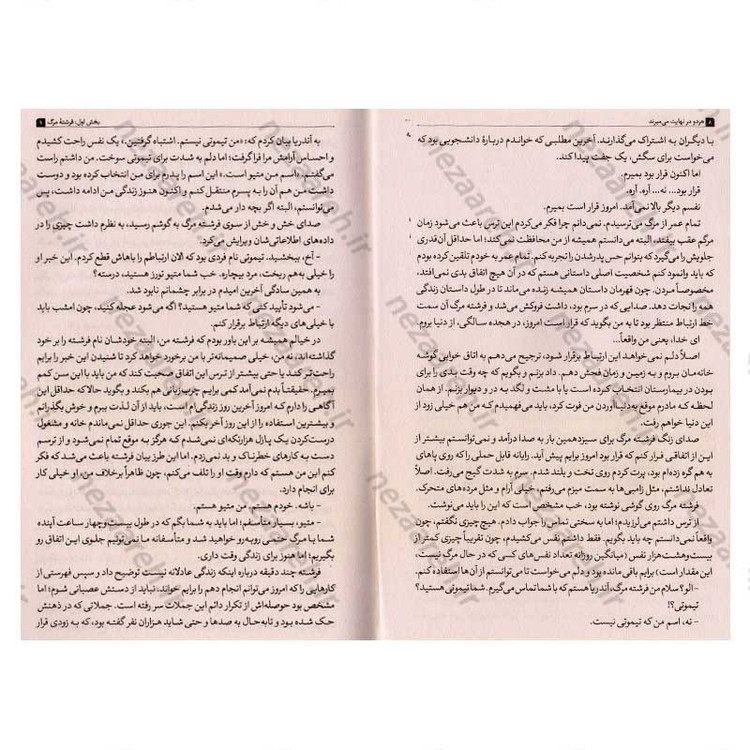 ۸ هر دو در نهایت می‌میرند
با دیگران به اشتراک می‌گذارند. آخرین مطلبی که خواندم دربارهٔ دانشجویی بود که
می‌خواست برای سگش، یک جفت پیدا کند.
اما اکنون قرار بود بمیرم.
قرار بود... نه... آره. آره.
نفسم دیگر بالا نمی‌آمد. امروز قرار است بمیرم.
تمام عمر از مرگ می‌ترسیدم. نمی‌دانم چرا فکر می‌کردم این ترس باعث می‌شود زمان
مرگم عقب بیفتد. البته می‌دانستم همیشه از من محافظت نمی‌کند؛ اما حداقل آن‌قدری
جلویش را می‌گیرد که بتوانم حس پدر شدن را تجربه کنم. تمام عمر به خودم تلقین کرده بودم
که باید وانمود کنم شخصیت اصلی داستانی هستم که در آن هیچ اتفاق بدی نمی‌افتد،
مخصوصاً مردن. چون قهرمان داستان همیشه زنده می‌ماند تا در طول داستان زندگی
همه را نجات دهد. صدایی که در سرم بود، داشت فروکش می‌شد و فرشته مرگ آن سمت
خط ارتباط منتظر بود تا به من بگوید که قرار است امروز، در هجده سالگی، از دنیا بروم.
ای خدا، یعنی من واقعاً...
اصلاً دلم نمی‌خواهد این ارتباط برقرار شود، ترجیح می‌دهم به اتاق خوابی گوشه
خانه‌مان بروم و به زمین و زمان فحش دهم. داد بزنم و بگویم که چه وقت بدی را برای
بودن در بیمارستان انتخاب کرده است یا با مشت و لگد به در و دیوار بزنم. از همان
لحظه که مادرم موقع به‌دنیا‌آوردن من فوت کرد، باید می‌فهمیدم که من هم خیلی زود از
این دنیا خواهم رفت.
صدای زنگ فرشته مرگ برای سیزدهمین بار به صدا درآمد و نمی‌توانستم بیشتر از
این از اتفاقی فرار کنم که قرار بود امروز برایم پیش آید. رایانه قابل حملی را که روی پاهای
به هم گره زده‌ام بود، پرت کردم روی تخت و بلند شدم. سرم به شدت گیج می‌رفت. اصلاً
تعادل نداشتم، مثل زامبی‌ها به سمت میزم می‌رفتم، خیلی آرام و مثل مرده‌های متحرک.
فرشته مرگ روی گوشی نوشته بود، خب مشخص است.
از ترس داشتم می‌لرزیدم؛ اما به سختی تماس را جواب دادم. هیچ چیزی نگفتم، چون
واقعاً نمی‌دانستم چه باید بگویم. فقط داشتم نفس می‌کشیدم، چون تقریباً چیزی کمتر از
بیست‌وهشت هزار نفس (میانگین روزانه تعداد نفس‌های کسی که در حال مرگ نیست،
این مقدار است) برایم باقی مانده بود و دلم می‌خواست تا می‌توانستم از آن‌ها استفاده کنم.
- الو؟ سلام من فرشته مرگ، آندریا هستم که با شما تماس می‌گیرم. شما تیموتی هستید؟
تیموتی؟!
- نه، اسم من که تیموتی نیست.
بخش اول: فرشتهٔ مرگ ۹
به آندریا بیان کردم که: «من تیموتی نیستم. اشتباه گرفتین.»، یک نفس راحت کشیدم
و احساس آرامش مرا فرا گرفت؛ اما دلم به شدت برای تیموتی سوخت. من داشتم راست
می‌گفتم. «اسم من متیو است.» این اسم را پدرم برای من انتخاب کرده بود و دوست
داشت من هم آن را به پسرم منتقل کنم و اکنون هنوز زندگی من ادامه داشت، پس
می‌توانستم، البته اگر بچه دار می‌شدم.
صدای خش و خش از سوی فرشته مرگ به گوشم رسید، به نظرم داشت چیزی را در
داده‌های اطلاعاتی‌شان ویرایش می‌کرد.
- آخ، ببخشید. تیموتی نام فردی بود که الان ارتباطم را باهاش قطع کردم. این خبر او
را خیلی به‌هم ریخت، مرد بیچاره. خب شما متیو تورز هستید، درسته؟
به همین سادگی آخرین امیدم در برابر چشمانم نابود شد.
- می‌شود تأیید کنی که شما متیو هستید؟ اگه می‌شود عجله کنید، چون امشب باید
با خیلی‌های دیگه ارتباط برقرار کنم.
در خیالم همیشه بر این باور بودم که فرشته من، البته خودشان نام فرشته را بر خود
گذاشته‌اند، نه من، خیلی صمیمانه‌تر با من برخورد خواهد کرد تا شنیدن این خبر را برایم
راحت‌تر کند یا حتی بیشتر از ترس این اتفاق صحبت کند که من باید با این سن کمم
بمیرم. حقیقتاً بدم نمی‌آمد کمی برایم چرب‌زبانی هم بکند و بگوید حالا که حداقل این
آگاهی را دارم که امروز آخرین روز زندگی‌ام است، باید از آن لذت ببرم و خوش بگذرانم
و بیشترین استفاده را از این روز آخر بکنم. این جوری حداقل نمی‌ماندم خانه و مشغول
درست‌کردن یک پازل هزارتکه‌ای نمی‌شدم که هرگز به موقع تمام نمی‌شود و از ترسم
دست به کارهای خطرناک و بد نمی‌زدم. اما این طرز بیان فرشته باعث می‌شد که فکر
کنم این من هستم که دارم وقت او را تلف می‌کنم، چون ظاهراً برخلاف من، او خیلی کار
برای انجام دارد.
- باشه. خودم هستم. من متیو هستم.
- متیو، بسیار متأسفم؛ اما باید به شما بگم که در طول بیست‌وچهار ساعت آینده
با یک مرگ حتمی روبه‌رو خواهید شد و متأسفانه ما نمی‌تونیم جلوی این اتفاق رو
بگیریم؛ اما هنوز برای زندگی وقت داری.
فرشته چند دقیقه درباره اینکه زندگی عادلانه نیست توضیح داد و سپس فهرستی از
کارهایی را که امروز می‌توانم انجام دهم را برایم خواند. نباید از دستش عصبانی شوم؛ اما
مشخص بود حوصله‌اش از تکرار دائم این جملات سر رفته است. جملاتی که در ذهنش
حک شده بود و تابه‌حال به صدها و حتی شاید هزاران نفر گفته بود، که به زودی قرار
nezaamieh.ir